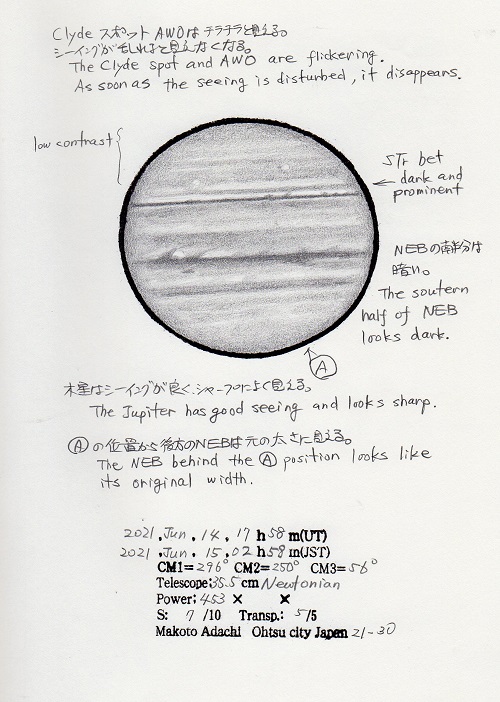 Clyde スポット AWOは チラチラと見える。
シーイングがそれると見えなくなる。
The Clyde spot and AWO are flickering.
As soon as the seeing is disturbed, it disappears.
low contrast
STr bet
dark and
prominent
NEBの南半分は
暗い。
The soutern
half of NEB
looks dark.
A
木星はシーイングが良く、シャープによく見える。
The Jupiter has good seeing and looks sharp.
Aの位置から後方のNEBは元の太さに見える。
The NEB behind the A position looks like
its original width.
2021, Jun, 14, 17 h 58 m(UT)
2021, Jun, 15, 02 h 58 m(JST)
CM1= 296° CM2= 250° CM3= 56°
Telescope; 35.5 cm Newtonian
Power; 453 × ×
S: 7 /10 Transp.: 5/5
Makoto Adachi Ohtsu city Japan 21-30